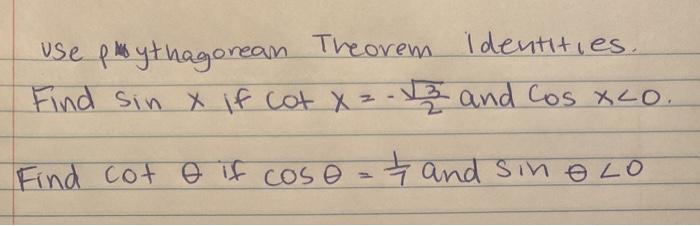 use pythagorean Theorem identities.
Find sin x if cot x = -√3/2 and cos x<0.
Find cot θ if cos θ = 1/7 and sin θ <0